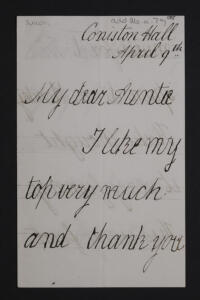 Coniston Hall
April 9th
My dear Auntie
I like my
top very much
and thank you